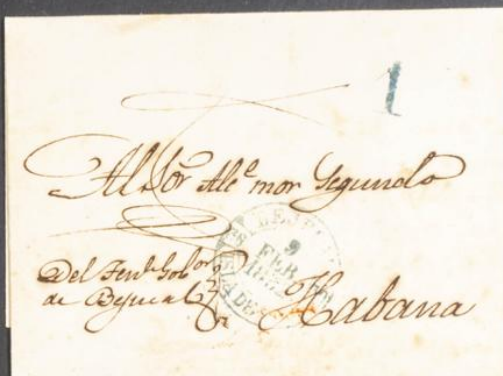 1
Al Sōr Ale.e mor Segundo
9
FEB
Del Ten.te Gob.or
de Bejucal
Habana